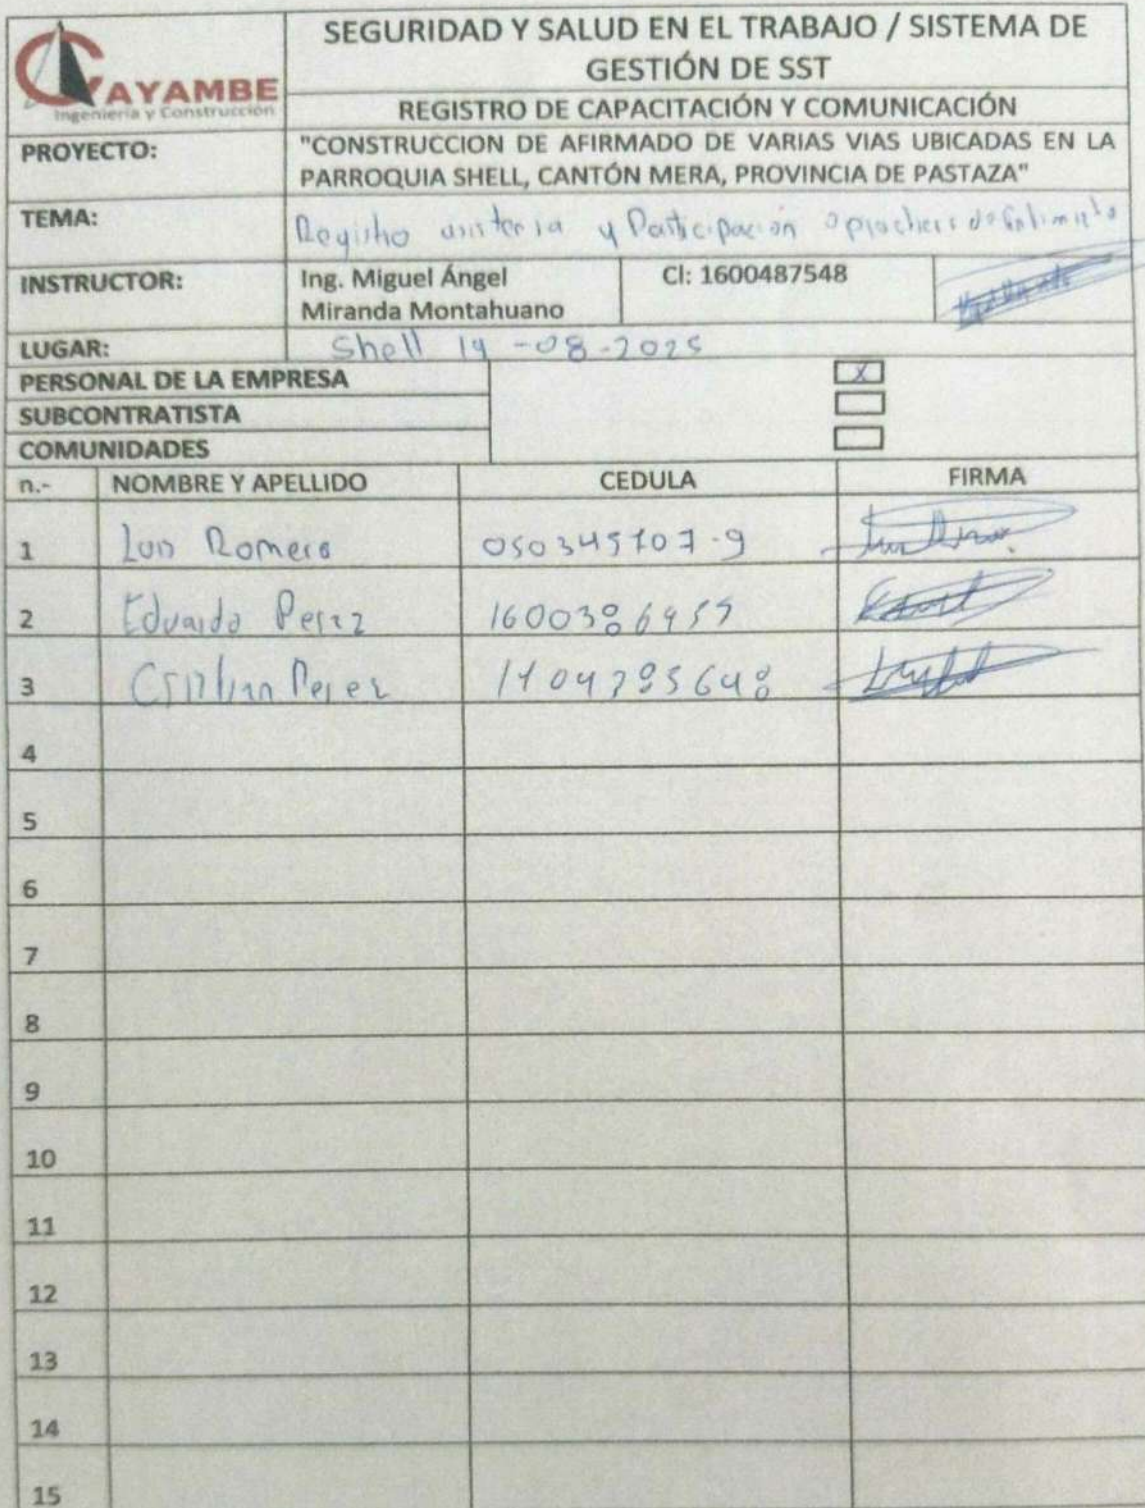 CAYAMBE
Ingeniería y Construcción
SEGURIDAD Y SALUD EN EL TRABAJO / SISTEMA DE
GESTIÓN DE SST
REGISTRO DE CAPACITACIÓN Y COMUNICACIÓN
PROYECTO:
"CONSTRUCCION DE AFIRMADO DE VARIAS VIAS UBICADAS EN LA
PARROQUIA SHELL, CANTÓN MERA, PROVINCIA DE PASTAZA"
TEMA:
Registro asistencia y Participación
INSTRUCTOR:
Ing. Miguel Ángel
Miranda Montahuano
CI: 1600487548
LUGAR:
Shell 14-08-2025
PERSONAL DE LA EMPRESA X
SUBCONTRATISTA
COMUNIDADES
n.- NOMBRE Y APELLIDO CEDULA FIRMA
1 Luis Romero
2 Eduardo Perez
3 Cristian Perez
4
5
6
7
8
9
10
11
12
13
14
15